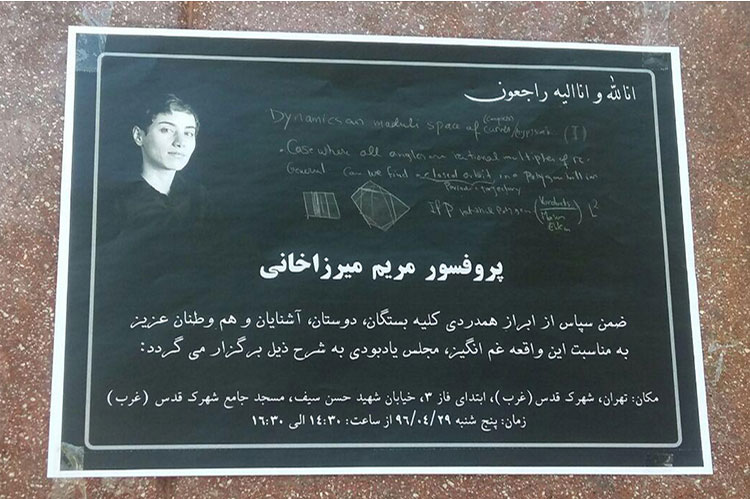 انالله و اناالیه راجعون
Dynamics on moduli space of
curves (I)
. Case where all angles are rational multiples of π.
General Can we find a closed orbit in a Polygon
trajectory
If P rational Polygon
پروفسور مریم میرزاخانی
ضمن سپاس از ابراز همدردی کلیه بستگان، دوستان، آشنایان و هم وطنان عزیز
به مناسبت این واقعه غم انگیز، مجلس یادبودی به شرح ذیل برگزار می گردد:
مکان: تهران، شهرک قدس (غرب)، ابتدای فاز ۳، خیابان شهید حسن سیف، مسجد جامع شهرک قدس (غرب)
زمان: پنج شنبه ۹۶/۰۴/۲۹ از ساعت: ۱۴:۳۰ الی ۱۶:۳۰